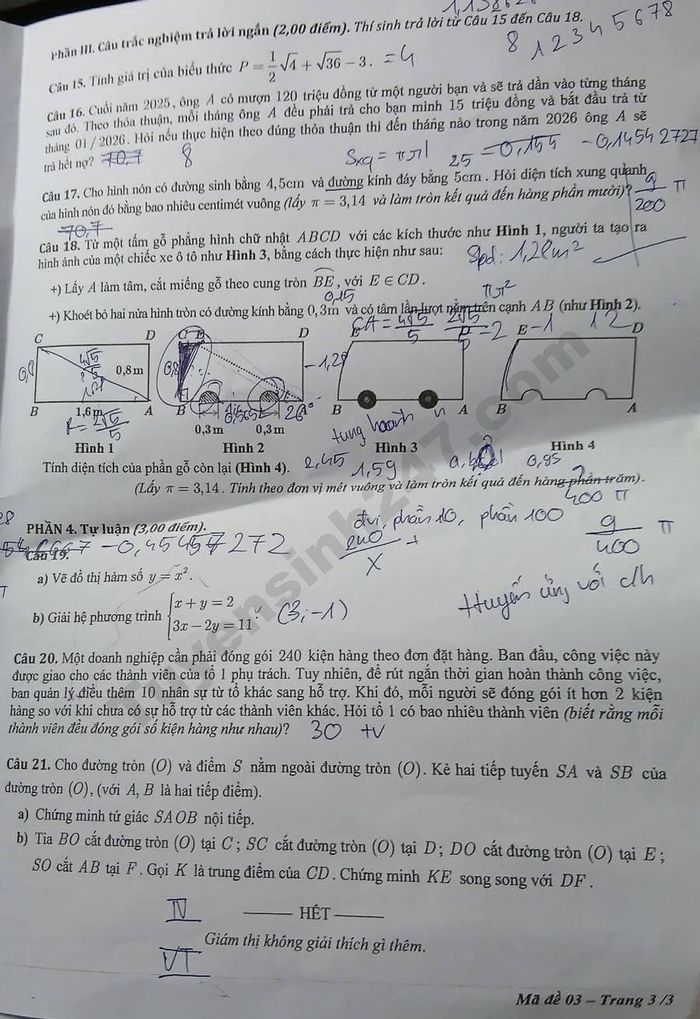 Phần III. Câu trắc nghiệm trả lời ngắn (2,00 điểm). Thí sinh trả lời từ Câu 15 đến Câu 18.
8 1 2 3 4 5 6 7 8
Câu 15. Tính giá trị của biểu thức P = 1/2 √4 + √36 − 3. = 4
Câu 16. Cuối năm 2025, ông A có mượn 120 triệu đồng từ một người bạn và sẽ trả dần vào từng tháng
sau đó. Theo thỏa thuận, mỗi tháng ông A đều phải trả cho bạn mình 15 triệu đồng và bắt đầu trả từ
tháng 01/2026. Hỏi nếu thực hiện theo đúng thỏa thuận thì đến tháng nào trong năm 2026 ông A sẽ
trả hết nợ? 70,7 8
Sxq = πrl
Câu 17. Cho hình nón có đường sinh bằng 4,5cm và đường kính đáy bằng 5cm. Hỏi diện tích xung quanh
của hình nón đó bằng bao nhiêu centimét vuông (lấy π = 3,14 và làm tròn kết quả đến hàng phần mười)?
9/200 π
70,7
Câu 18. Từ một tấm gỗ phẳng hình chữ nhật ABCD với các kích thước như Hình 1, người ta tạo ra
hình ảnh của một chiếc xe ô tô như Hình 3, bằng cách thực hiện như sau:
Spd: 1,28m²
+) Lấy A làm tâm, cắt miếng gỗ theo cung tròn BE, với E ∈ CD.
0,15
πr²
+) Khoét bỏ hai nửa hình tròn có đường kính bằng 0,3m và có tâm lần lượt nằm trên cạnh AB (như Hình 2).
C D C E D E E D
0,8m
B 1,6m A B A B A B A
0,3m 0,3m
Hình 1 Hình 2 Hình 3 Hình 4
Tính diện tích của phần gỗ còn lại (Hình 4).
2,45 1,59
(Lấy π = 3,14. Tính theo đơn vị mét vuông và làm tròn kết quả đến hàng phần trăm).
400 π
PHẦN 4. Tự luận (3,00 điểm).
đvi, phần 10, phần 100
9/400 π
Câu 19.
240/x +
a) Vẽ đồ thị hàm số y = x².
b) Giải hệ phương trình { x + y = 2
3x − 2y = 11 . (3; −1)
Huyến ứng với
Câu 20. Một doanh nghiệp cần phải đóng gói 240 kiện hàng theo đơn đặt hàng. Ban đầu, công việc này
được giao cho các thành viên của tổ 1 phụ trách. Tuy nhiên, để rút ngắn thời gian hoàn thành công việc,
ban quản lý điều thêm 10 nhân sự từ tổ khác sang hỗ trợ. Khi đó, mỗi người sẽ đóng gói ít hơn 2 kiện
hàng so với khi chưa có sự hỗ trợ từ các thành viên khác. Hỏi tổ 1 có bao nhiêu thành viên (biết rằng mỗi
thành viên đều đóng gói số kiện hàng như nhau)? 30 tv
Câu 21. Cho đường tròn (O) và điểm S nằm ngoài đường tròn (O). Kẻ hai tiếp tuyến SA và SB của
đường tròn (O), (với A, B là hai tiếp điểm).
a) Chứng minh tứ giác SAOB nội tiếp.
b) Tia BO cắt đường tròn (O) tại C; SC cắt đường tròn (O) tại D; DO cắt đường tròn (O) tại E;
SO cắt AB tại F. Gọi K là trung điểm của CD. Chứng minh KE song song với DF.
IV
HẾT
Giám thị không giải thích gì thêm.
VI
Mã đề 03 – Trang 3/3
tuyensinh247.com